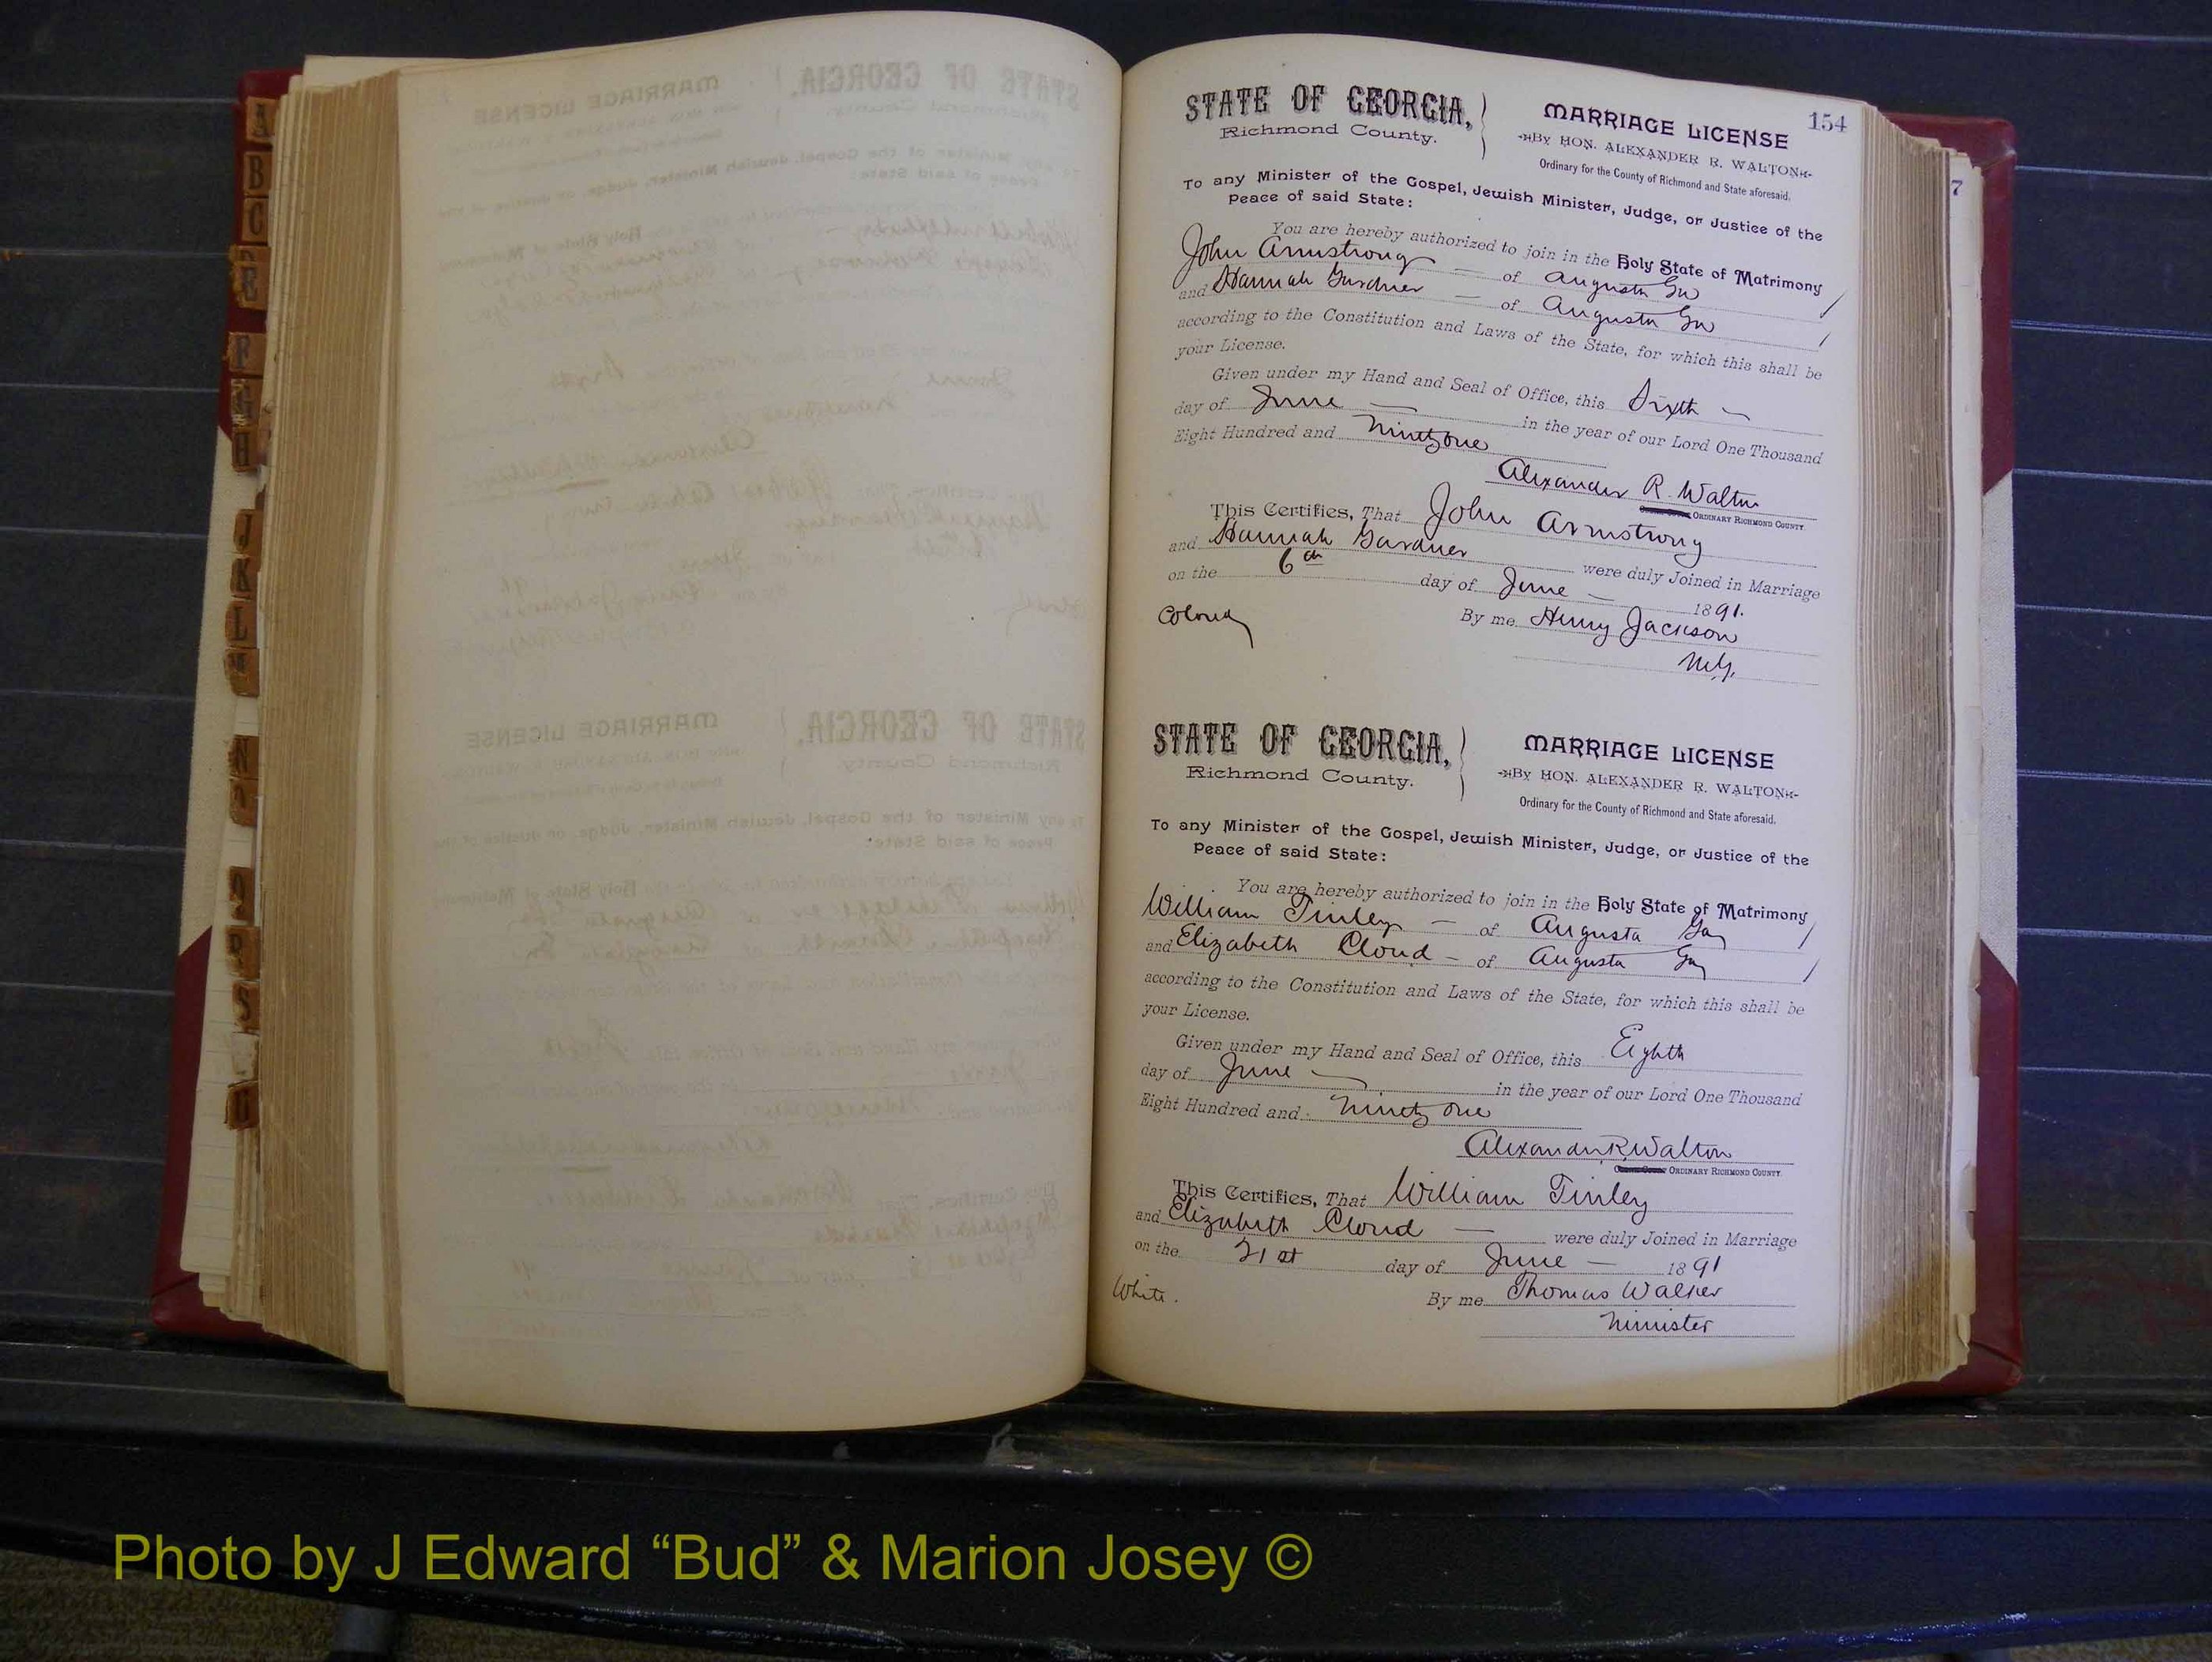 A
B
C
E
F
H
J
K
L
M
N
O
Q
R
S
154
7
STATE OF GEORGIA,
Richmond County.
MARRIAGE LICENSE
By HON. ALEXANDER R. WALTON
Ordinary for the County of Richmond and State aforesaid.
To any Minister of the Gospel, Jewish Minister, Judge, or Justice of the
Peace of said State:
You are hereby authorized to join in the Holy State of Matrimony
John Armstrong — of Augusta Ga
and Hannah Gardner — of Augusta Ga
according to the Constitution and Laws of the State, for which this shall be
your License.
Given under my Hand and Seal of Office, this Sixth
day of June — in the year of our Lord One Thousand
Eight Hundred and Ninety one
Alexander R. Walton
ORDINARY RICHMOND COUNTY.
This Certifies, That John Armstrong
and Hannah Gardner were duly Joined in Marriage
on the 6th day of June — 1891.
Colored
By me Henry Jackson
M.G.
STATE OF GEORGIA,
Richmond County.
MARRIAGE LICENSE
By HON. ALEXANDER R. WALTON
Ordinary for the County of Richmond and State aforesaid.
To any Minister of the Gospel, Jewish Minister, Judge, or Justice of the
Peace of said State:
You are hereby authorized to join in the Holy State of Matrimony
William Tinley — of Augusta Ga
and Elizabeth Cloud — of Augusta Ga
according to the Constitution and Laws of the State, for which this shall be
your License.
Given under my Hand and Seal of Office, this Eighth
day of June — in the year of our Lord One Thousand
Eight Hundred and Ninety one
Alexander R. Walton
ORDINARY RICHMOND COUNTY.
This Certifies, That William Tinley
and Elizabeth Cloud — were duly Joined in Marriage
on the 21st day of June — 1891
White.
By me Thomas Walker
Minister
Photo by J Edward “Bud” & Marion Josey ©